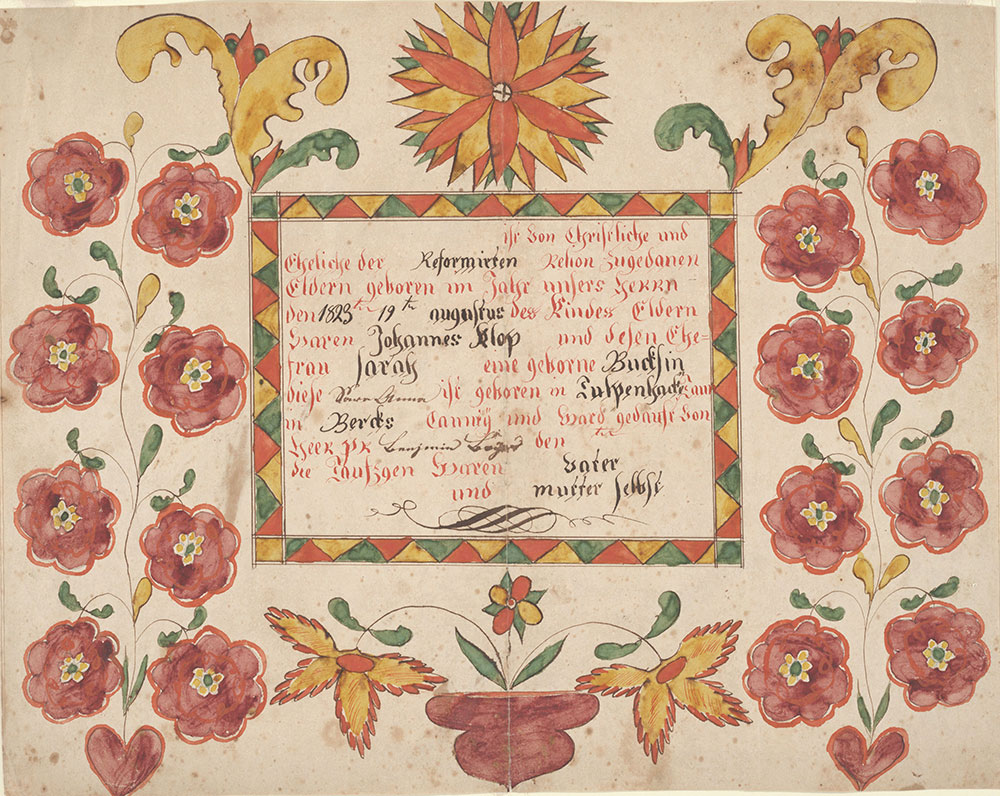 ist Von Christliche und
Eheliche der Reformirten Relion Zugedanen
Eldern geboren im Jahr unsers HERRN
den 1823th 19th augustus des Kindes Eldern
Waren Johannes Klop und desen Ehe=
frau Sarah eine geborne Bucksin
diese Anna ist geboren in Tulpenhack Taun
in Bercks Caunty und Ward gedauft von
HEER PR Benjmin den ten
die Taufzgen Waren Vater
und mutter selbst